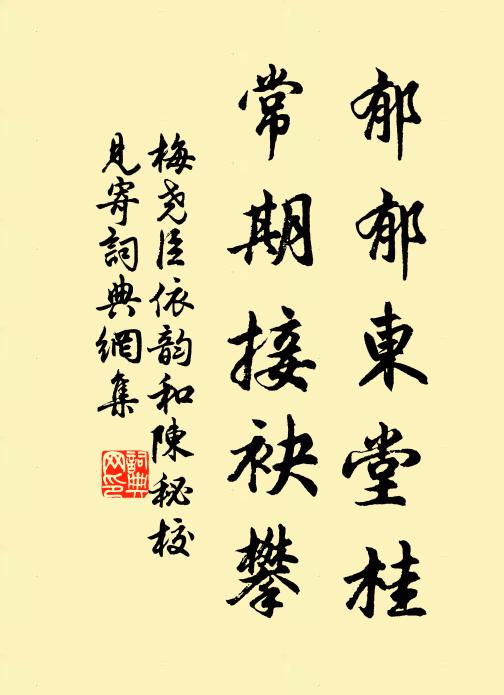 郁郁東堂桂
常期接袂攀
梅堯臣依韵和陳秘校
見寄詞典網集
詞典网印